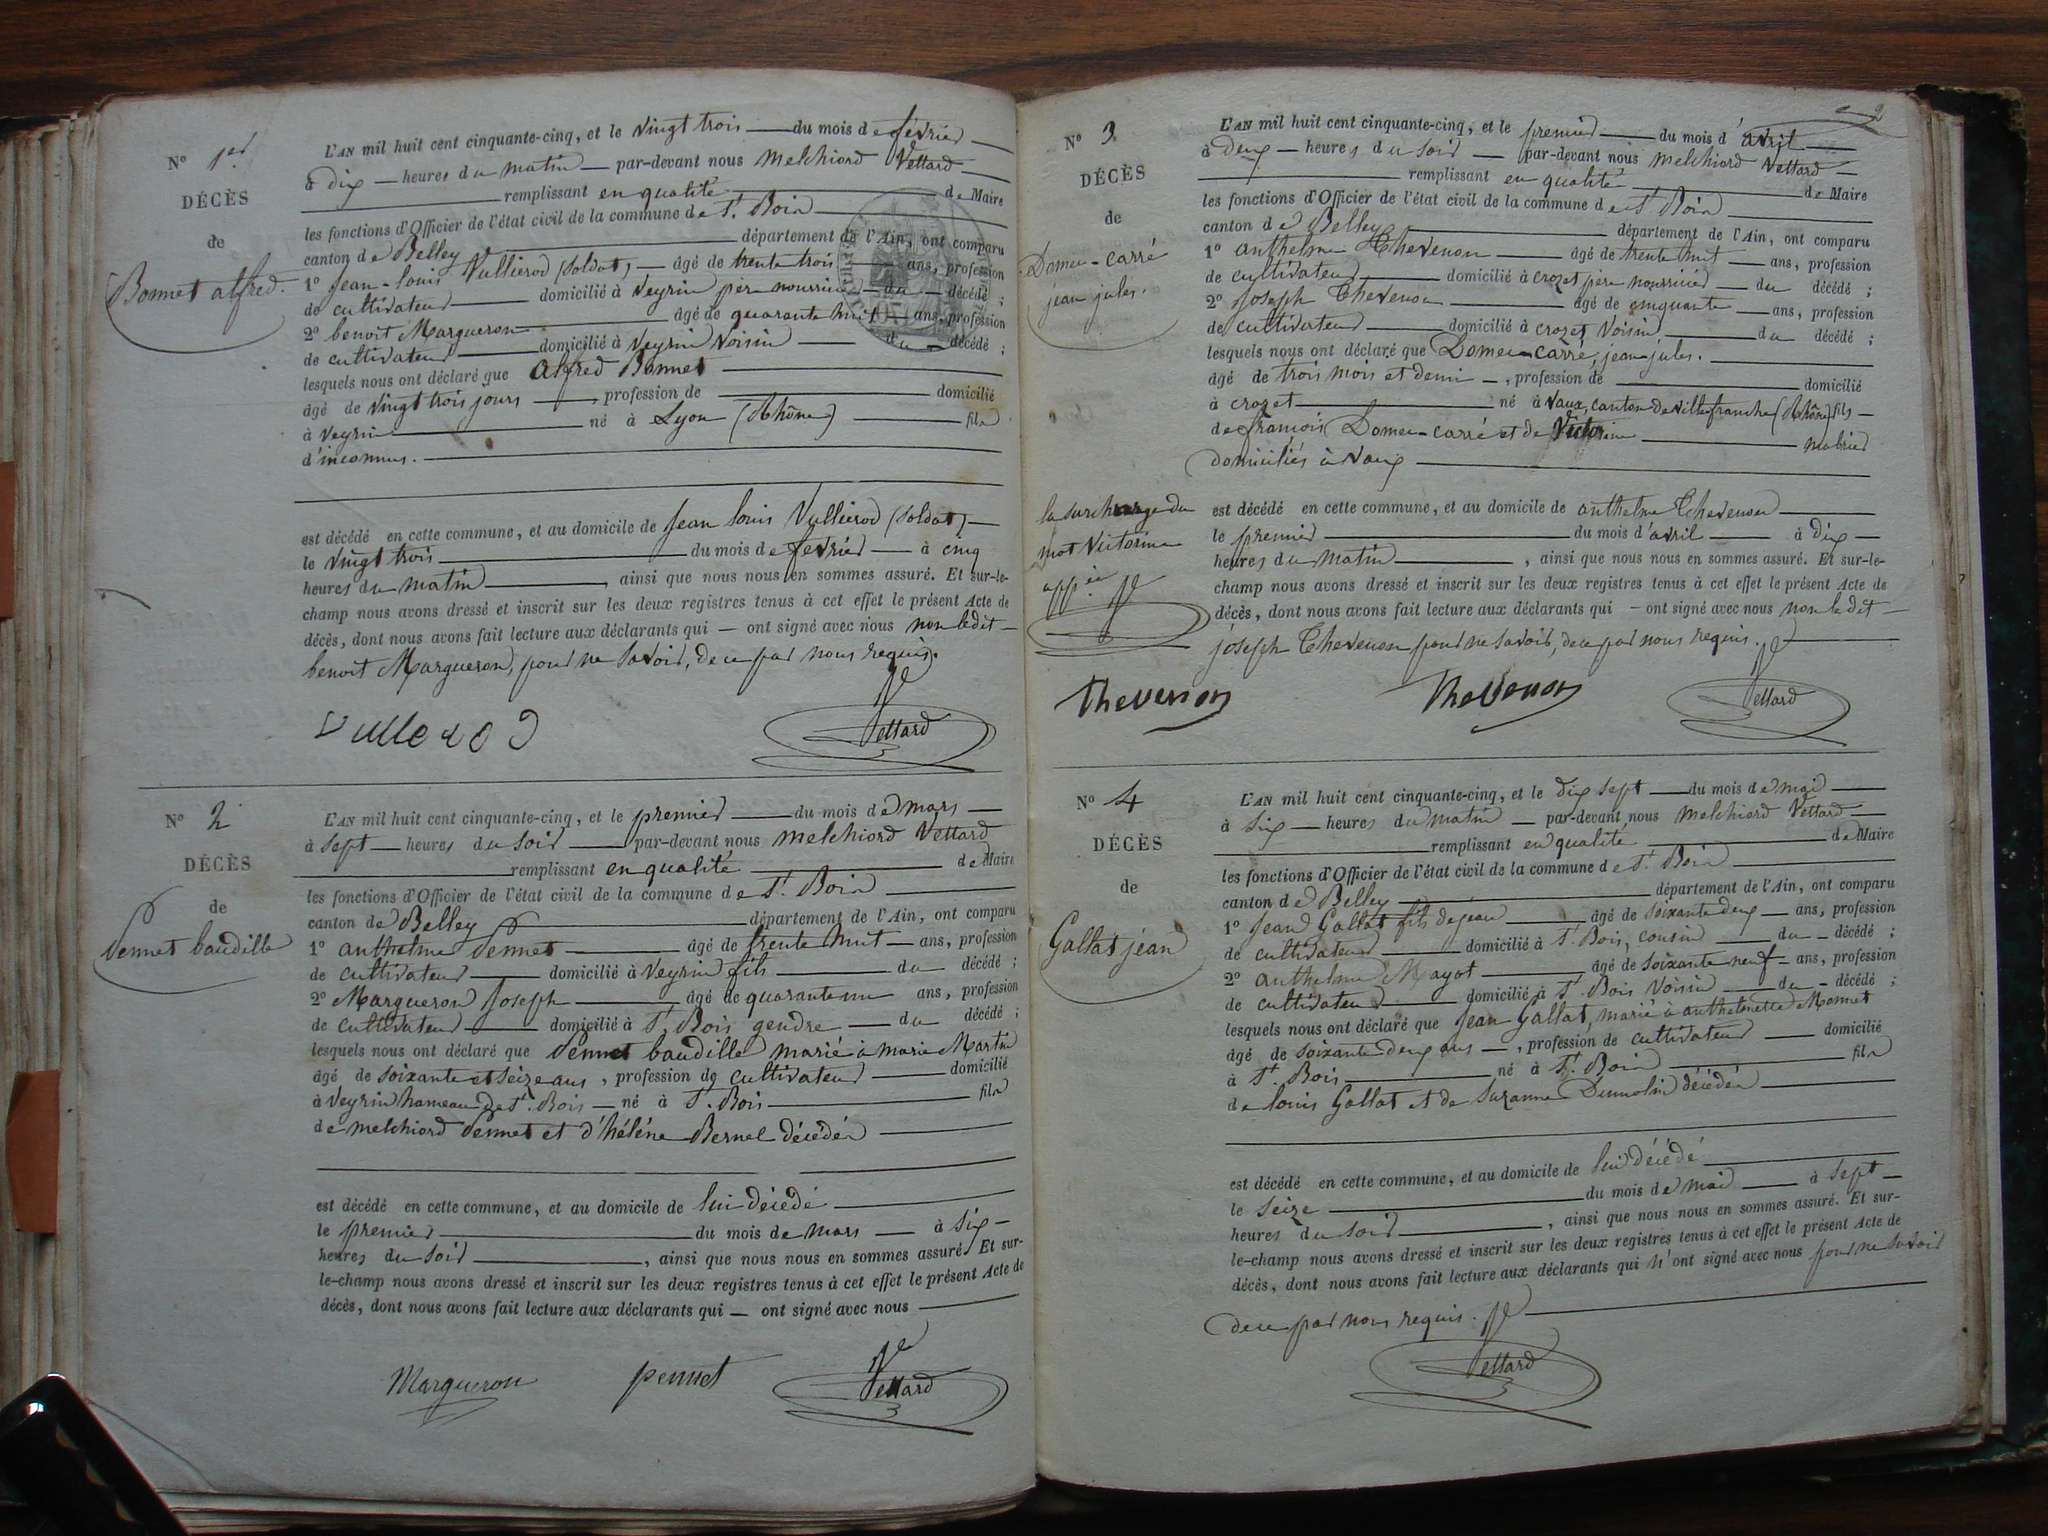 N° 1er
DÉCÈS
de
Bonnet alfred.
L'AN mil huit cent cinquante-cinq, et le vingt trois du mois de février
à dix heures du matin par-devant nous melchiord Vettard
remplissant en qualité de Maire
les fonctions d'Officier de l'état civil de la commune de St. Bois
canton de Belley département de l'Ain, ont comparu
1° jean-louis Vullierod (soldat) âgé de trente trois ans, profession
de cultivateur domicilié à Veyrin per nourricier du décédé ;
2° benoit Margueron âgé de quarante huit ans, profession
de cultivateur domicilié à Veyrin Voisin du décédé ;
lesquels nous ont déclaré que alfred Bonnet
âgé de vingt trois jours, profession de domicilié
à Veyrin né à Lyon (Rhône) fils
d'inconnus.
est décédé en cette commune, et au domicile de jean louis Vullierod (soldat)
le vingt trois du mois de fevrier à cinq
heures du matin, ainsi que nous nous en sommes assuré. Et sur-le-
champ nous avons dressé et inscrit sur les deux registres tenus à cet effet le présent Acte de
décès, dont nous avons fait lecture aux déclarants qui — ont signé avec nous non ledit
benoit Margueron, pour ne savoir, de ce par nous requis.
Vettard
N° 2
DÉCÈS
de
Pennet baudille
L'AN mil huit cent cinquante-cinq, et le premier du mois de mars
à sept heures du soir par-devant nous melchiord Vettard
remplissant en qualité de Maire
les fonctions d'Officier de l'état civil de la commune de St. Bois
canton de Belley département de l'Ain, ont comparu
1° anthelme Pennet âgé de trente huit ans, profession
de cultivateur domicilié à Veyrin fils du décédé ;
2° Margueron Joseph âgé de quarante un ans, profession
de cultivateur domicilié à St. Bois gendre du décédé ;
lesquels nous ont déclaré que Pennet baudille marié à marie Martin
âgé de soixante et seize ans, profession de cultivateur domicilié
à Veyrin hameau de St. Bois né à St. Bois fils
de melchiord Pennet et d'hélène Bernel décédés
est décédé en cette commune, et au domicile de lui décédé
le premier du mois de mars à six
heures du soir, ainsi que nous nous en sommes assuré. Et sur-
le-champ nous avons dressé et inscrit sur les deux registres tenus à cet effet le présent Acte de
décès, dont nous avons fait lecture aux déclarants qui — ont signé avec nous
Margueron pennet Vettard
2
N° 3
DÉCÈS
de
Domeu-carré
jean jules.
L'AN mil huit cent cinquante-cinq, et le premier du mois d'avril
à deux heures du soir par-devant nous melchiord Vettard
remplissant en qualité de Maire
les fonctions d'Officier de l'état civil de la commune de St. Bois
canton de Belley département de l'Ain, ont comparu
1° anthelme Thevenon âgé de trente huit ans, profession
de cultivateur domicilié à crozet père nourricier du décédé ;
2° joseph Thevenon âgé de cinquante ans, profession
de cultivateur domicilié à crozet Voisin du décédé ;
lesquels nous ont déclaré que Domeu-carré, jean-jules.
âgé de trois mois et demi, profession de domicilié
à crozet né à Vaux, canton de Villefranche (Rhône) fils
de françois Domeu-carré et de Victorine
domiciliés à Vaux
la surcharge du
mot Victorine
app.ée
est décédé en cette commune, et au domicile de anthelme Thevenon
le premier du mois d'avril à dix
heures du matin, ainsi que nous nous en sommes assuré. Et sur-le-
champ nous avons dressé et inscrit sur les deux registres tenus à cet effet le présent Acte de
décès, dont nous avons fait lecture aux déclarants qui — ont signé avec nous non le dit
joseph Thevenon pour ne savoir, de ce par nous requis.
Thevenon Thevenon Vettard
N° 4
DÉCÈS
de
Gallat jean
L'AN mil huit cent cinquante-cinq, et le dix sept du mois de mai
à six heures du matin par-devant nous melchiord Vettard
remplissant en qualité de Maire
les fonctions d'Officier de l'état civil de la commune de St. Bois
canton de Belley département de l'Ain, ont comparu
1° jean Gallat fils de jean âgé de soixante deux ans, profession
de cultivateur domicilié à St. Bois, cousin du décédé ;
2° anthelme Mayot âgé de soixante neuf ans, profession
de cultivateur domicilié à St. Bois Voisin du décédé ;
lesquels nous ont déclaré que jean Gallat, marié à anthelmette Monnet
âgé de soixante deux ans, profession de cultivateur domicilié
à St. Bois né à St. Bois fils
de louis Gallat et de Suzanne Dumolin décédés
est décédé en cette commune, et au domicile de lui décédé
le seize du mois de mai à sept
heures du soir, ainsi que nous nous en sommes assuré. Et sur-
le-champ nous avons dressé et inscrit sur les deux registres tenus à cet effet le présent Acte de
décès, dont nous avons fait lecture aux déclarants qui n'ont signé avec nous pour ne savoir
de ce par nous requis.
Vettard